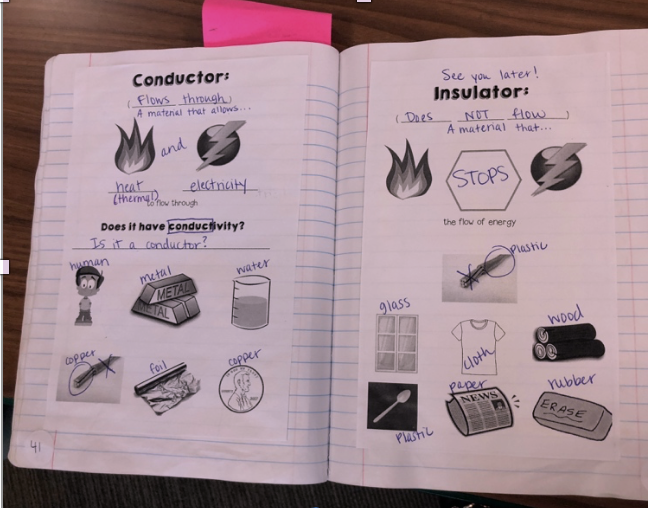 Conductor:
( Flows through )
A material that allows...
and
heat electricity
(thermal)
to flow through
Does it have conductivity?
Is it a conductor?
human
metal
water
METAL
METAL
copper
foil
copper
41
See you later!
Insulator:
( Does NOT flow )
A material that...
STOPS
the flow of energy
plastic
glass
cloth
wood
plastic
paper
NEWS
rubber
ERASE